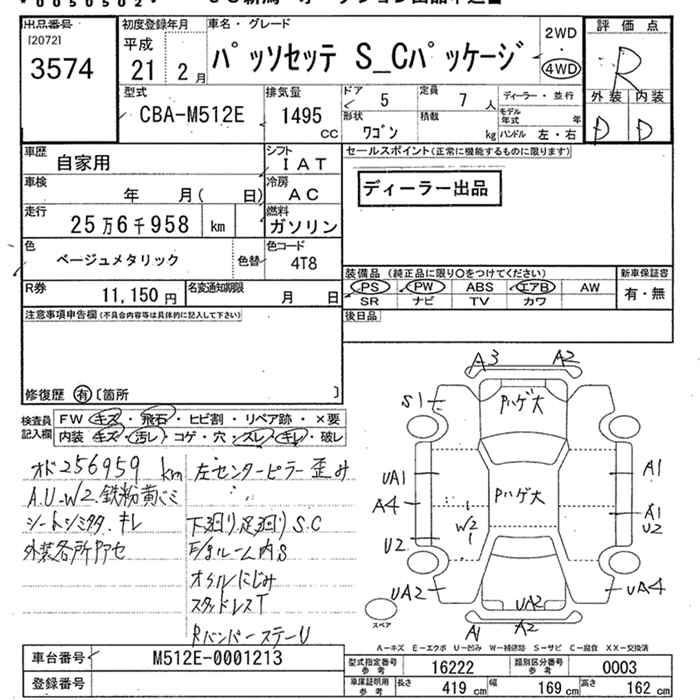 出品番号
[2072]
3574
初度登録年月
平成
21 2月
車名・グレード
パッソセッテ S_Cパッケージ
2WD
・
4WD
評価点
R
外装 内装
D D
型式
CBA-M512E
排気量
1495
cc
ドア
5
定員
7 人
ディーラー・並行
形状
ワゴン
積載
kg
モデル年式 年
ハンドル 左・右
車歴
自家用
シフト
IAT
車検
年 月( 日)
冷房
AC
走行
25万6千958 km
燃料
ガソリン
色
ベージュメタリック
色替
色コード
4T8
R券
11,150円
名変通知期限
月 日
セールスポイント(正常に機能するものに限ります)
ディーラー出品
装備品(純正品に限り○をつけてください)
PS PW ABS エアB AW
SR ナビ TV カワ
新車保証書
有・無
注意事項申告欄(不具合内容等は具体的に記入して下さい)
後日品
修復歴 有 〔箇所 〕
検査員記入欄
FW キズ・飛石・ヒビ割・リペア跡・×要
内装 キズ・汚レ・コゲ・穴・スレ・キレ・破レ
オド256959km
A.U-W2.鉄粉黄バミ
シートシミ タタ. キレ
外装各所Pアセ
左センターピラー歪み
下廻り足廻りS.C
F/Sルーム内S
オイルにじみ
スタッドレスT
RバンパーステーU
A3 A2
S1
Pハゲ大
UA1
A4
U2
UA2
Pハゲ大
W2
A1
A1
U2
UA4
UA2
A1 A2
スペア
A-キズ E-エクボ U-凹み W-補修跡 S-サビ C-腐食 XX-交換済
車台番号
M512E-0001213
登録番号
型式指定番号
参考
16222
類別区分番号
参考
0003
車庫証明用
参考
長さ
419 cm
幅
169 cm
高さ
162 cm